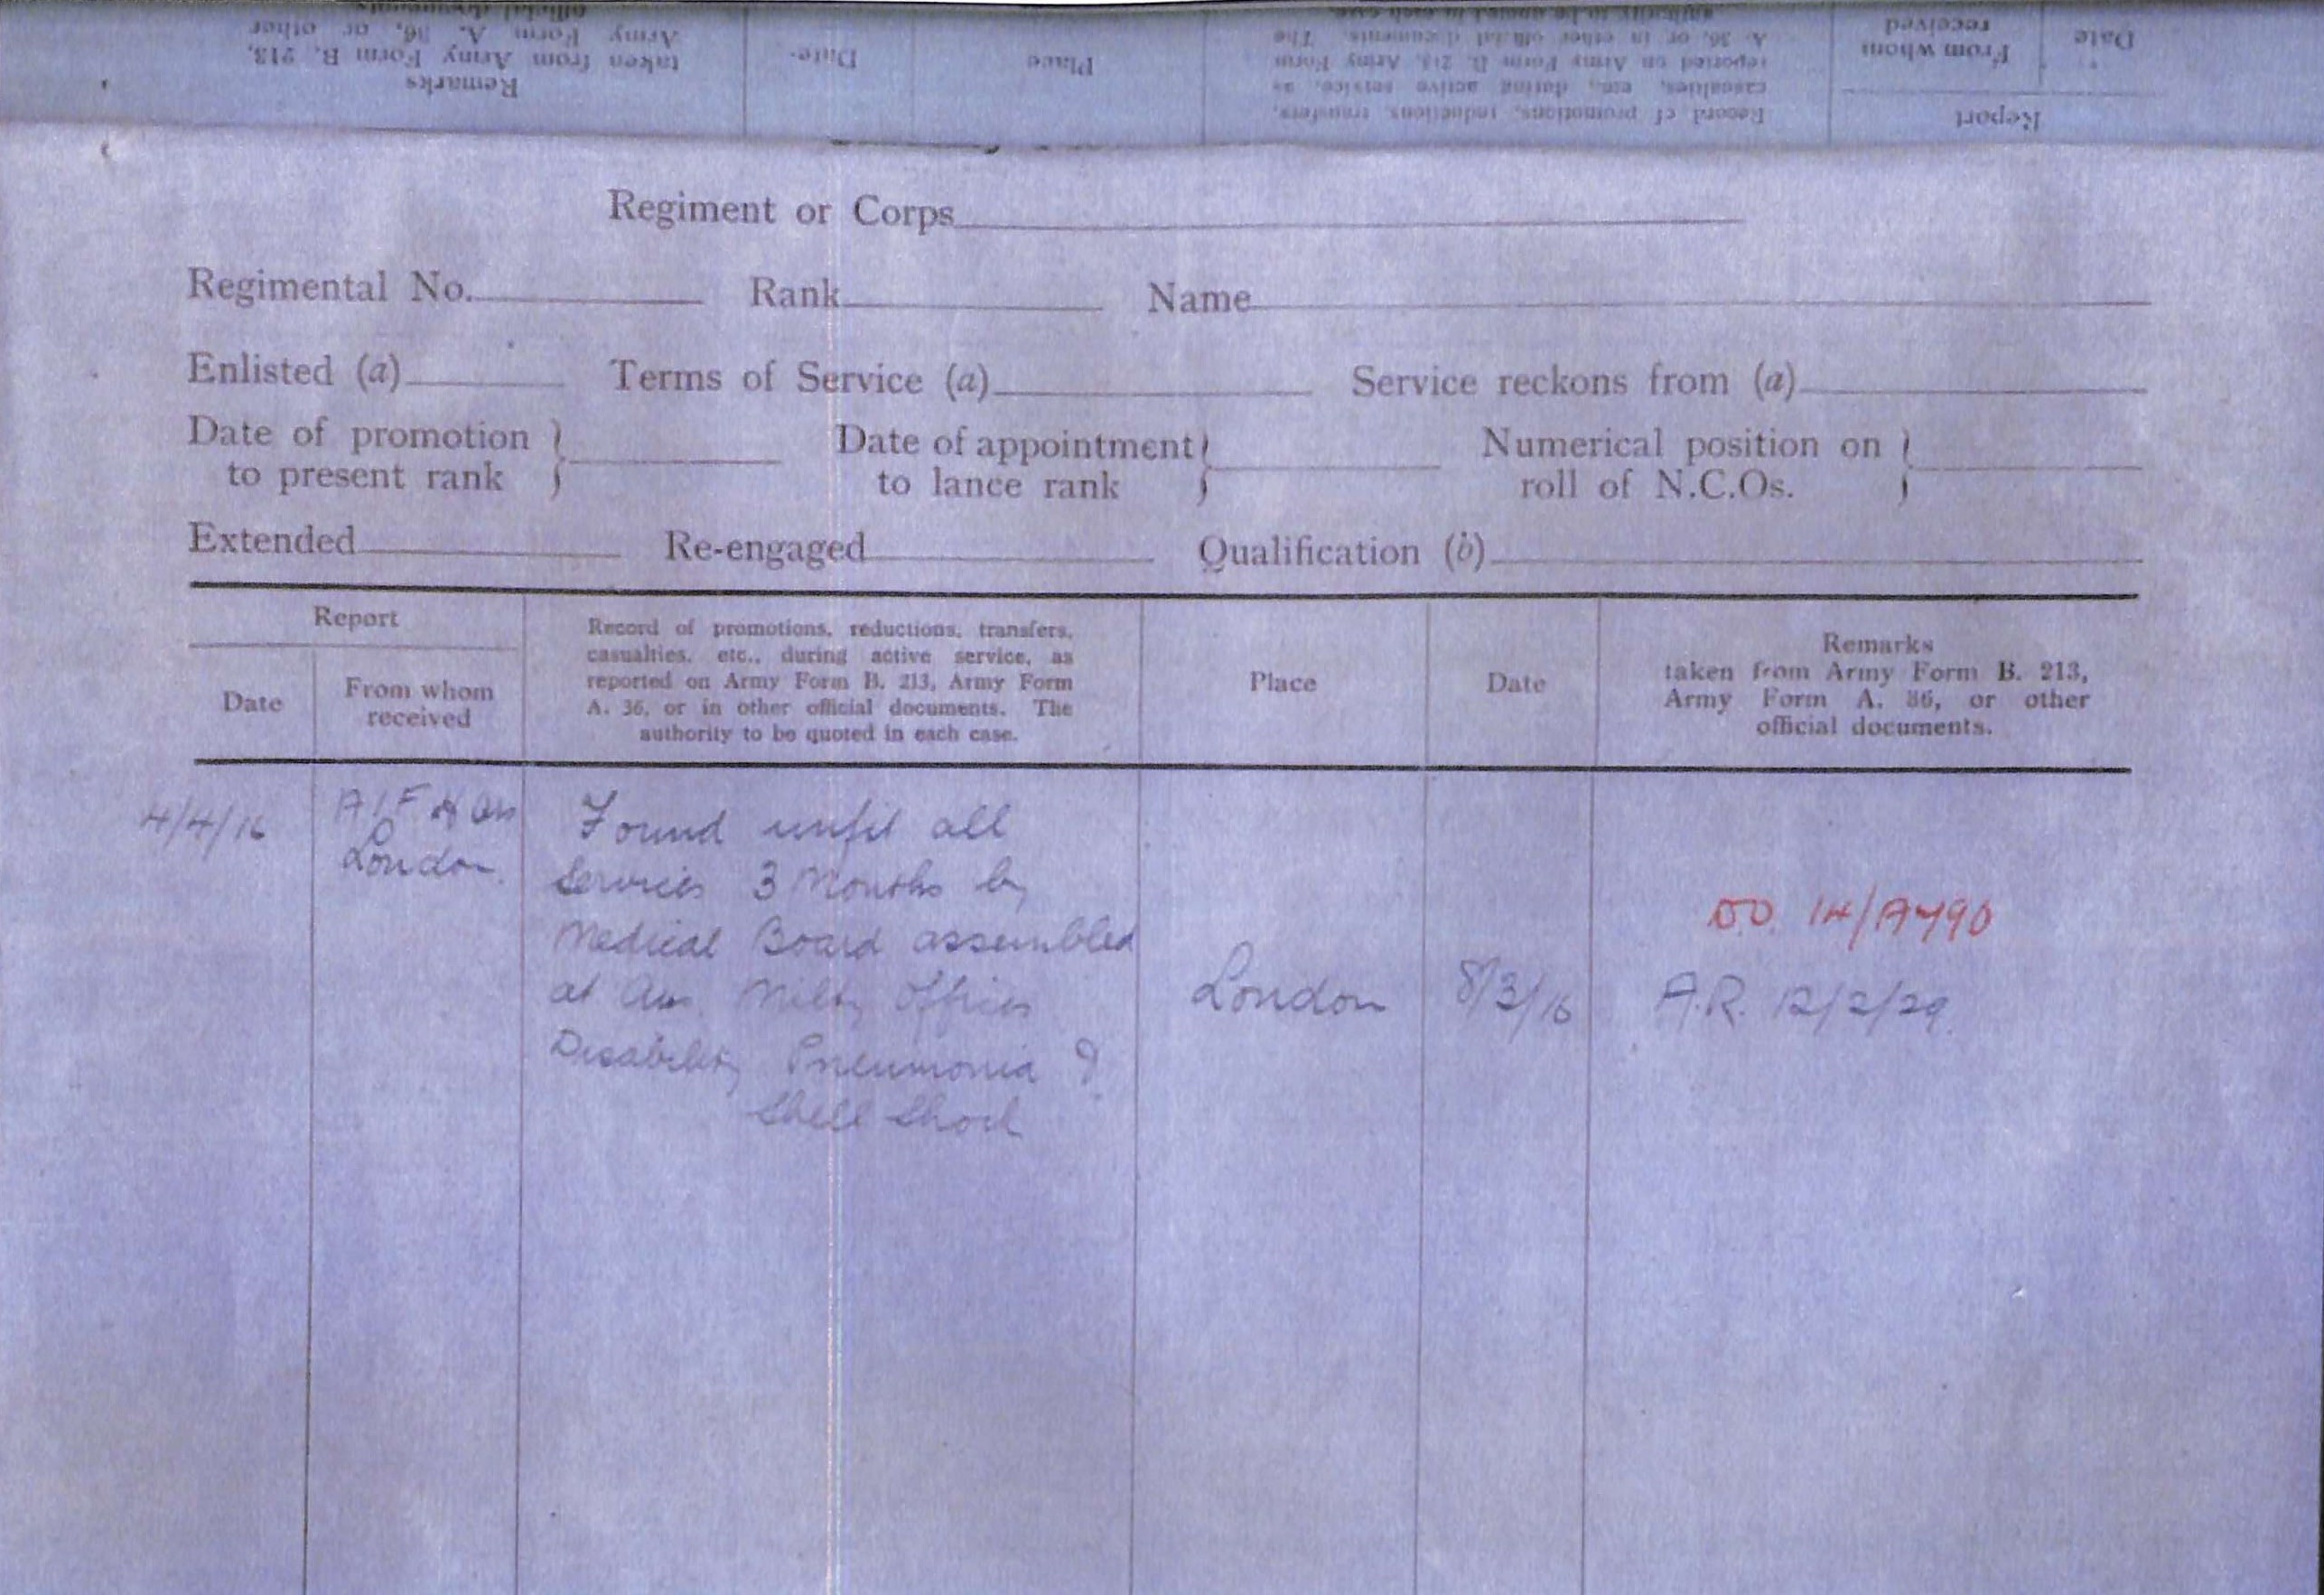 Remarks
taken from Army Form B. 213,
Army Form A. 36, or other
official documents.
Date
Place
Record of promotions, reductions, transfers,
casualties, etc., during active service, as
reported on Army Form B. 213, Army Form
A. 36, or in other official documents. The
authority to be quoted in each case.
Report
From whom
received
Date
Regiment or Corps
Regimental No. Rank Name
Enlisted (a) Terms of Service (a) Service reckons from (a)
Date of promotion to present rank } Date of appointment to lance rank } Numerical position on roll of N.C.Os. }
Extended Re-engaged Qualification (b)
Report
Date
From whom
received
Record of promotions, reductions, transfers,
casualties, etc., during active service, as
reported on Army Form B. 213, Army Form
A. 36, or in other official documents. The
authority to be quoted in each case.
Place
Date
Remarks
taken from Army Form B. 213,
Army Form A. 36, or other
official documents.
4/4/16
AIF
London.
Found unfit all
Services 3 Months by
Medical Board assembled
at Aus. Milty Offices
Disability Pneumonia &
Shell Shock
London
8/3/16
DO 14/A490
A.R. 12/2/29